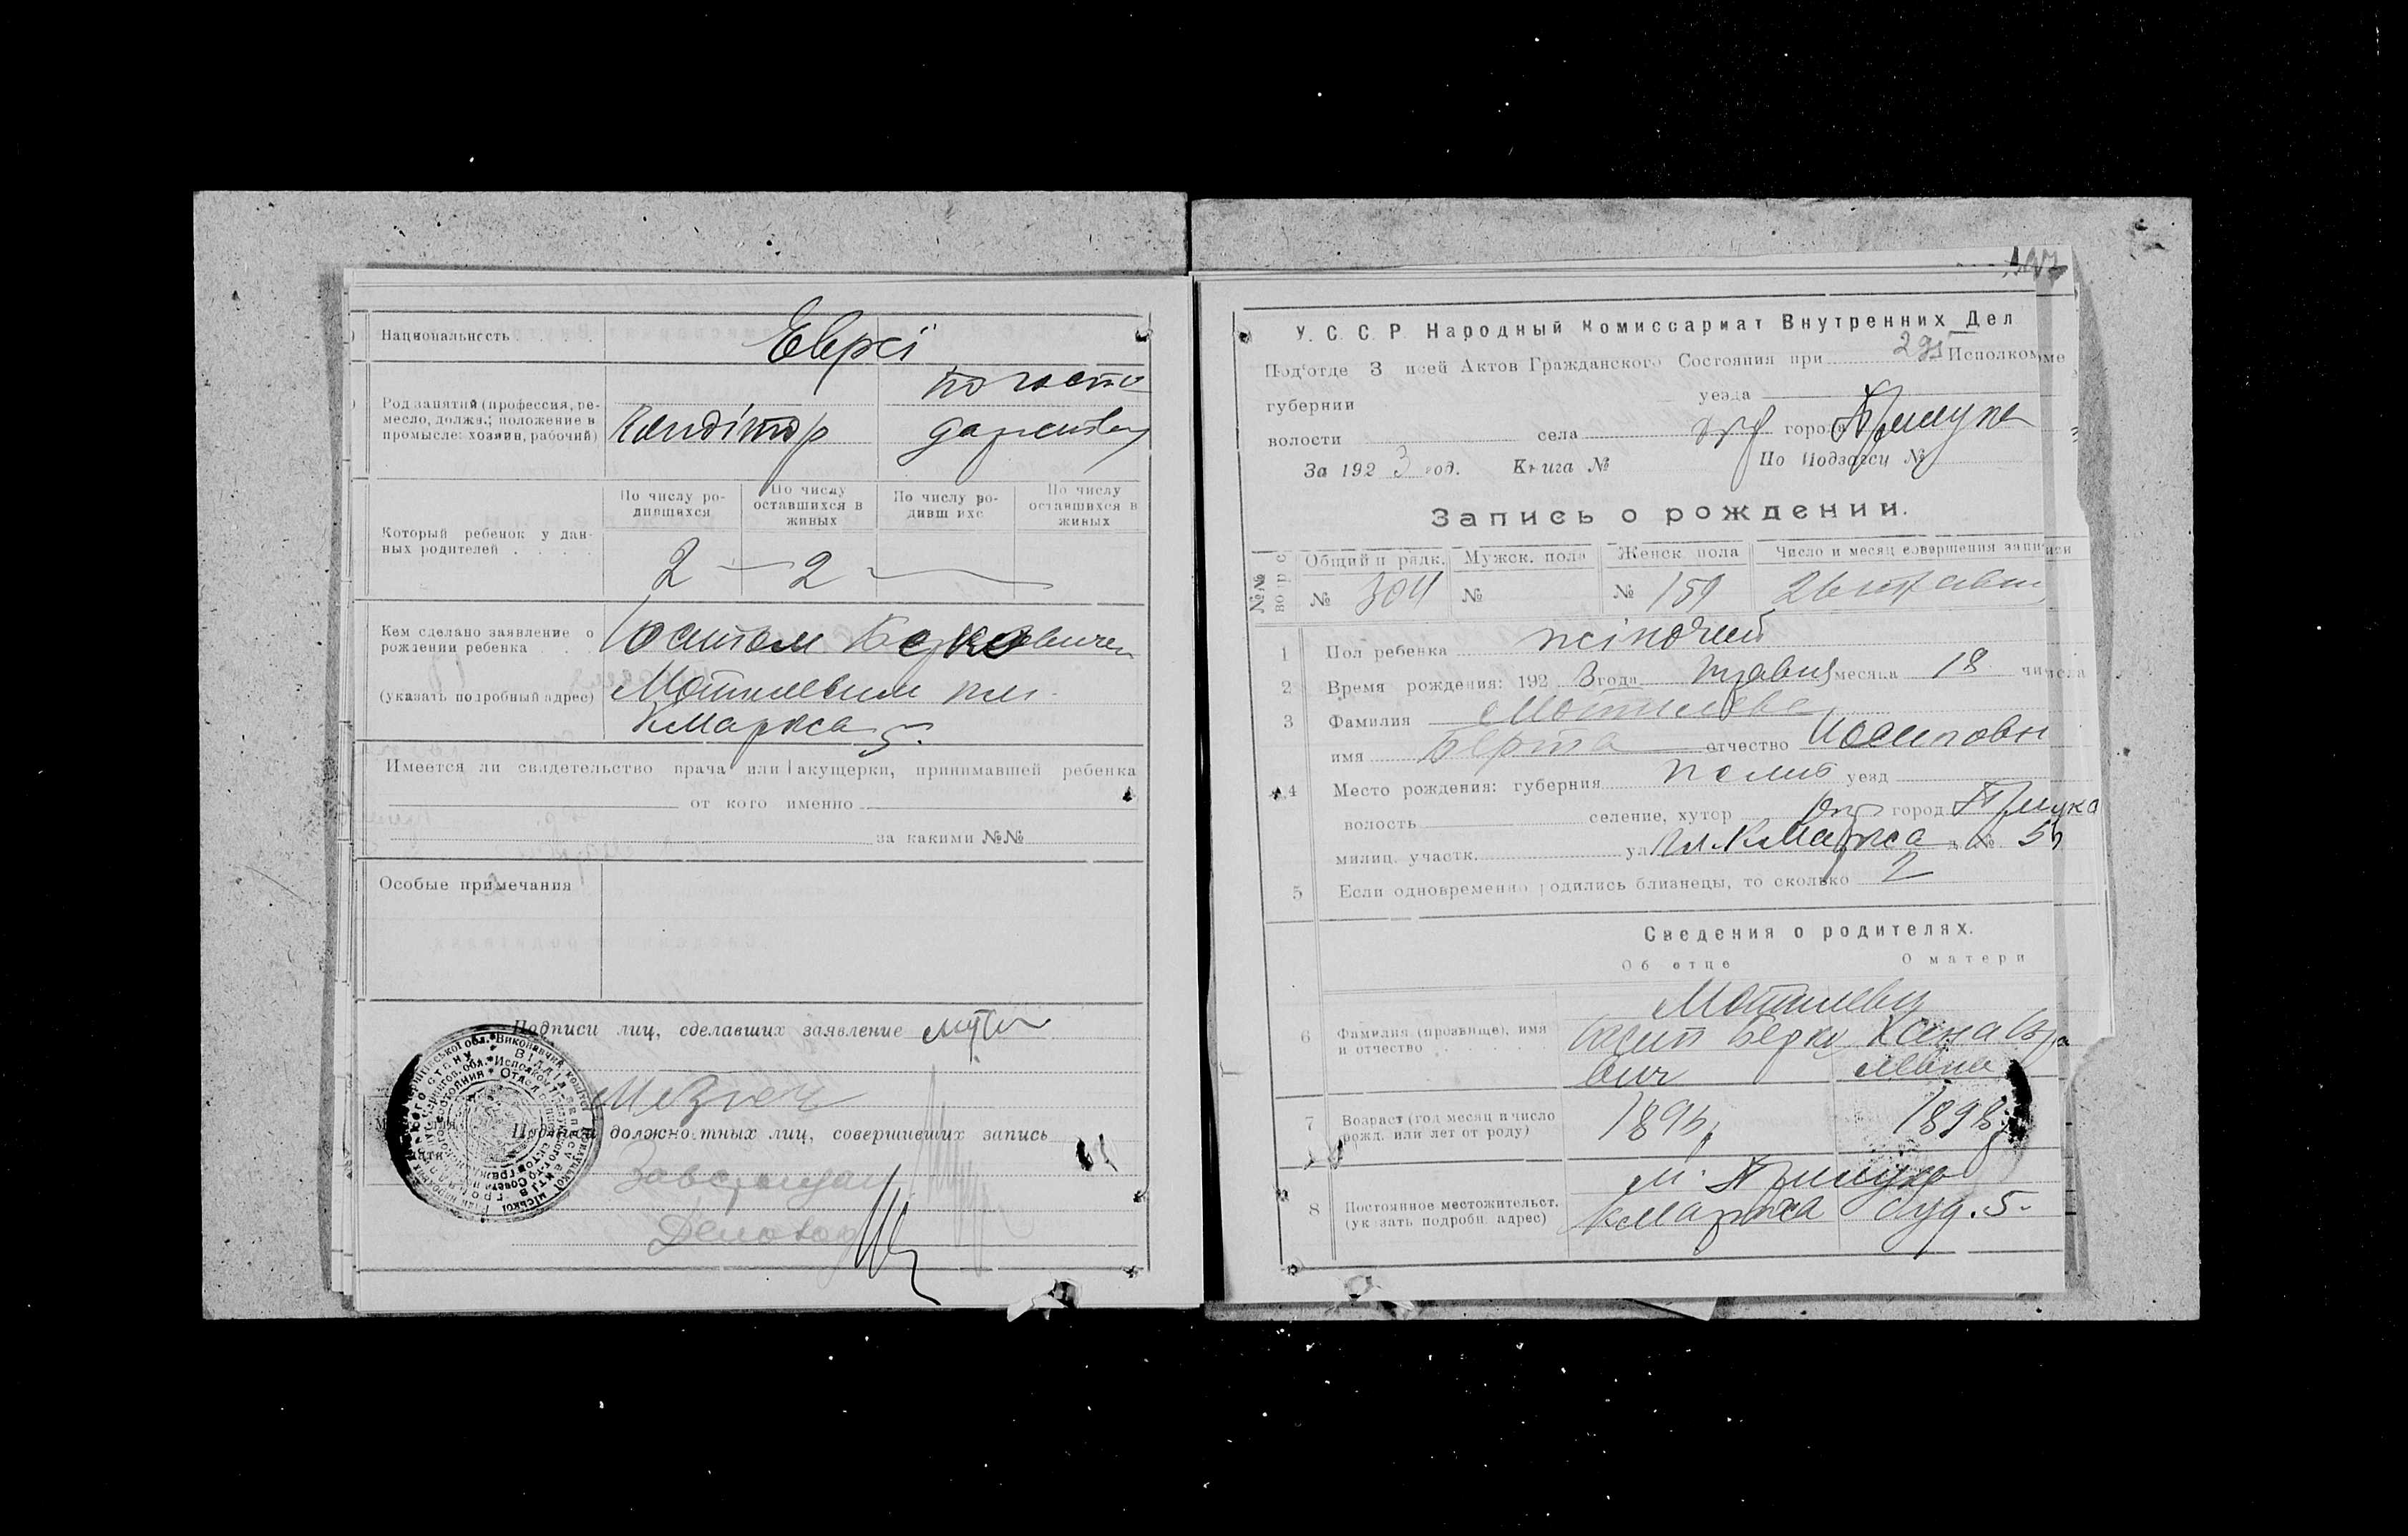 Национальность
Евреї
Род занятий (профессия, ре-
месло, должн., положение в
промысле: хозяин, рабочий)
Кондітор
по госпо
дарству
Который ребенок у дан-
ных родителей
По числу ро-
дившихся
По числу
оставшихся в
живых
По числу ро-
дивш ихс
По числу
оставшихся в
живых
2 — 2
Кем сделано заявление о
рождении ребенка
(указать подробный адрес)
Йосипом Берковичем
Мотилевим пл.
КМаркса 5.
Имеется ли свидетельство врача или акушерки, принимавшей ребенка
от кого именно
за какими №№
Особые примечания
Подписи лиц, сделавших заявление
Подписи должностных лиц, совершивших запись
Завстолом
Деловод
У. С. С. Р Народный Комиссариат Внутренних Дел
Под'отде З исей Актов Гражданского Состояния при Исполкоме
губернии уезда
волости села города Прилука
За 1923 год. Книга № По Подзагсу №
Запись о рождении.
№№ Общий п рядк. Мужск. пола Женск пола Число и месяц совершения записи
№ 304 № № 159
1 Пол ребенка жіночий
2 Время рождения: 1923 года Травня месяца 18 числа
3 Фамилия Мотилева
имя Берта отчество Йосиповн
4 Место рождения: губерния Полт уезд
волость селение, хутор город Прилука
милиц. участк. ул пл. КМаркса д. № 5
5 Если одновременно родились близнецы, то сколько 2
Сведения о родителях.
Об отце О матери
6 Фамилия (прозвище), имя
и отчество
Мотилеви
Йосип Берко
вич
7 Возраст (год месяц и число
рожд. или лет от роду)
1898
8 Постоянное местожительст.
(указать подробн. адрес)
м. Прилука
КМаркса буд. 5.